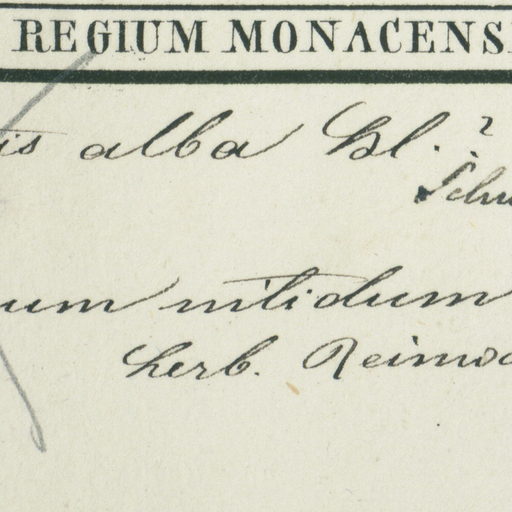 REGIUM MONACENS
is alba Bl. ?
Schu
um nitidum
herb. Reinw